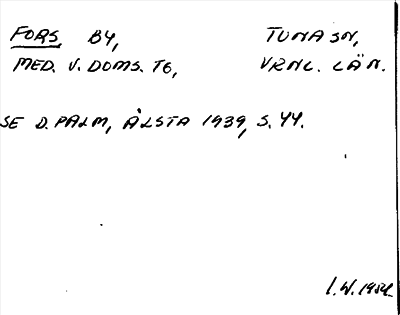 FORS BY, TUNA SN,
MED. V. DOMS. TG, VRNL. LÄN.
SE D. PALM, ÅLSTA 1939, S. 44.
I. W. 1954.